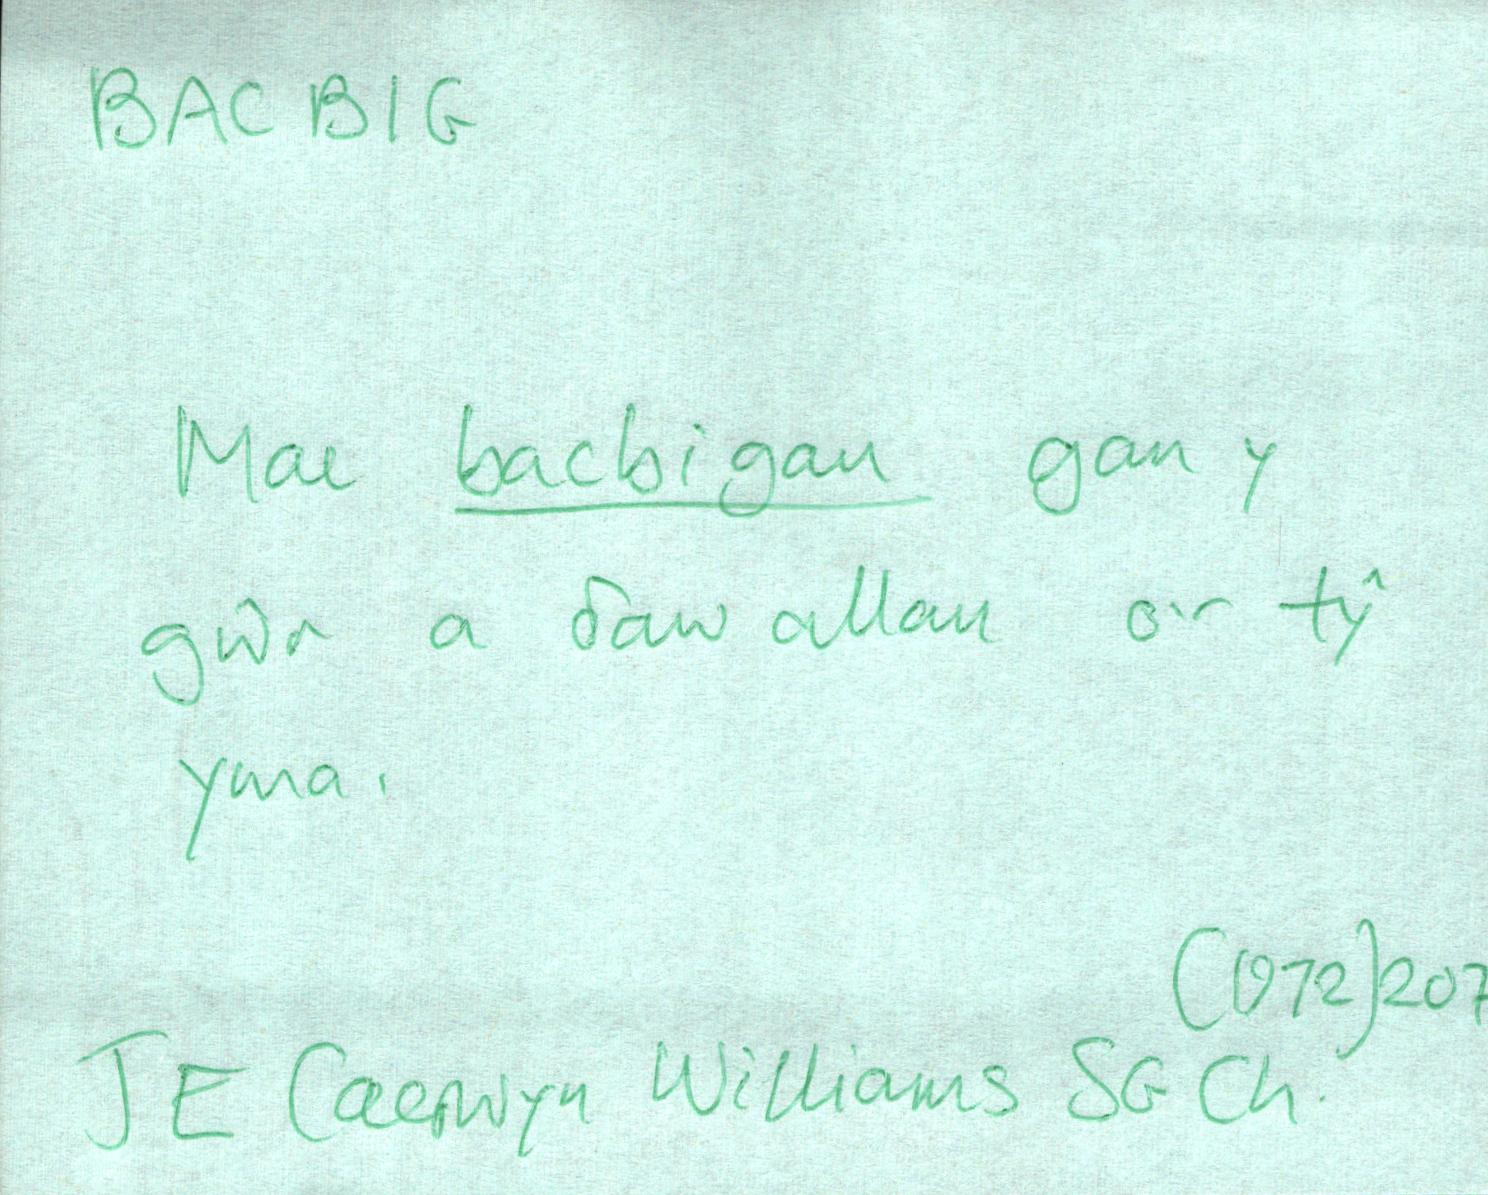 BACBIG
Mae bacbigau gan y
gŵr a δaw allan o'r tŷ
yma.
(1972) 207
J E Caerwyn Williams SG Ch.